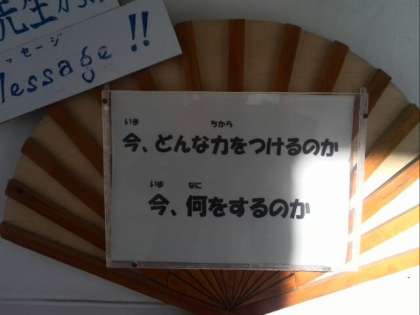 先生から
メッセージ
Message!!
いま ちから
今、どんな力をつけるのか
いま なに
今、何をするのか